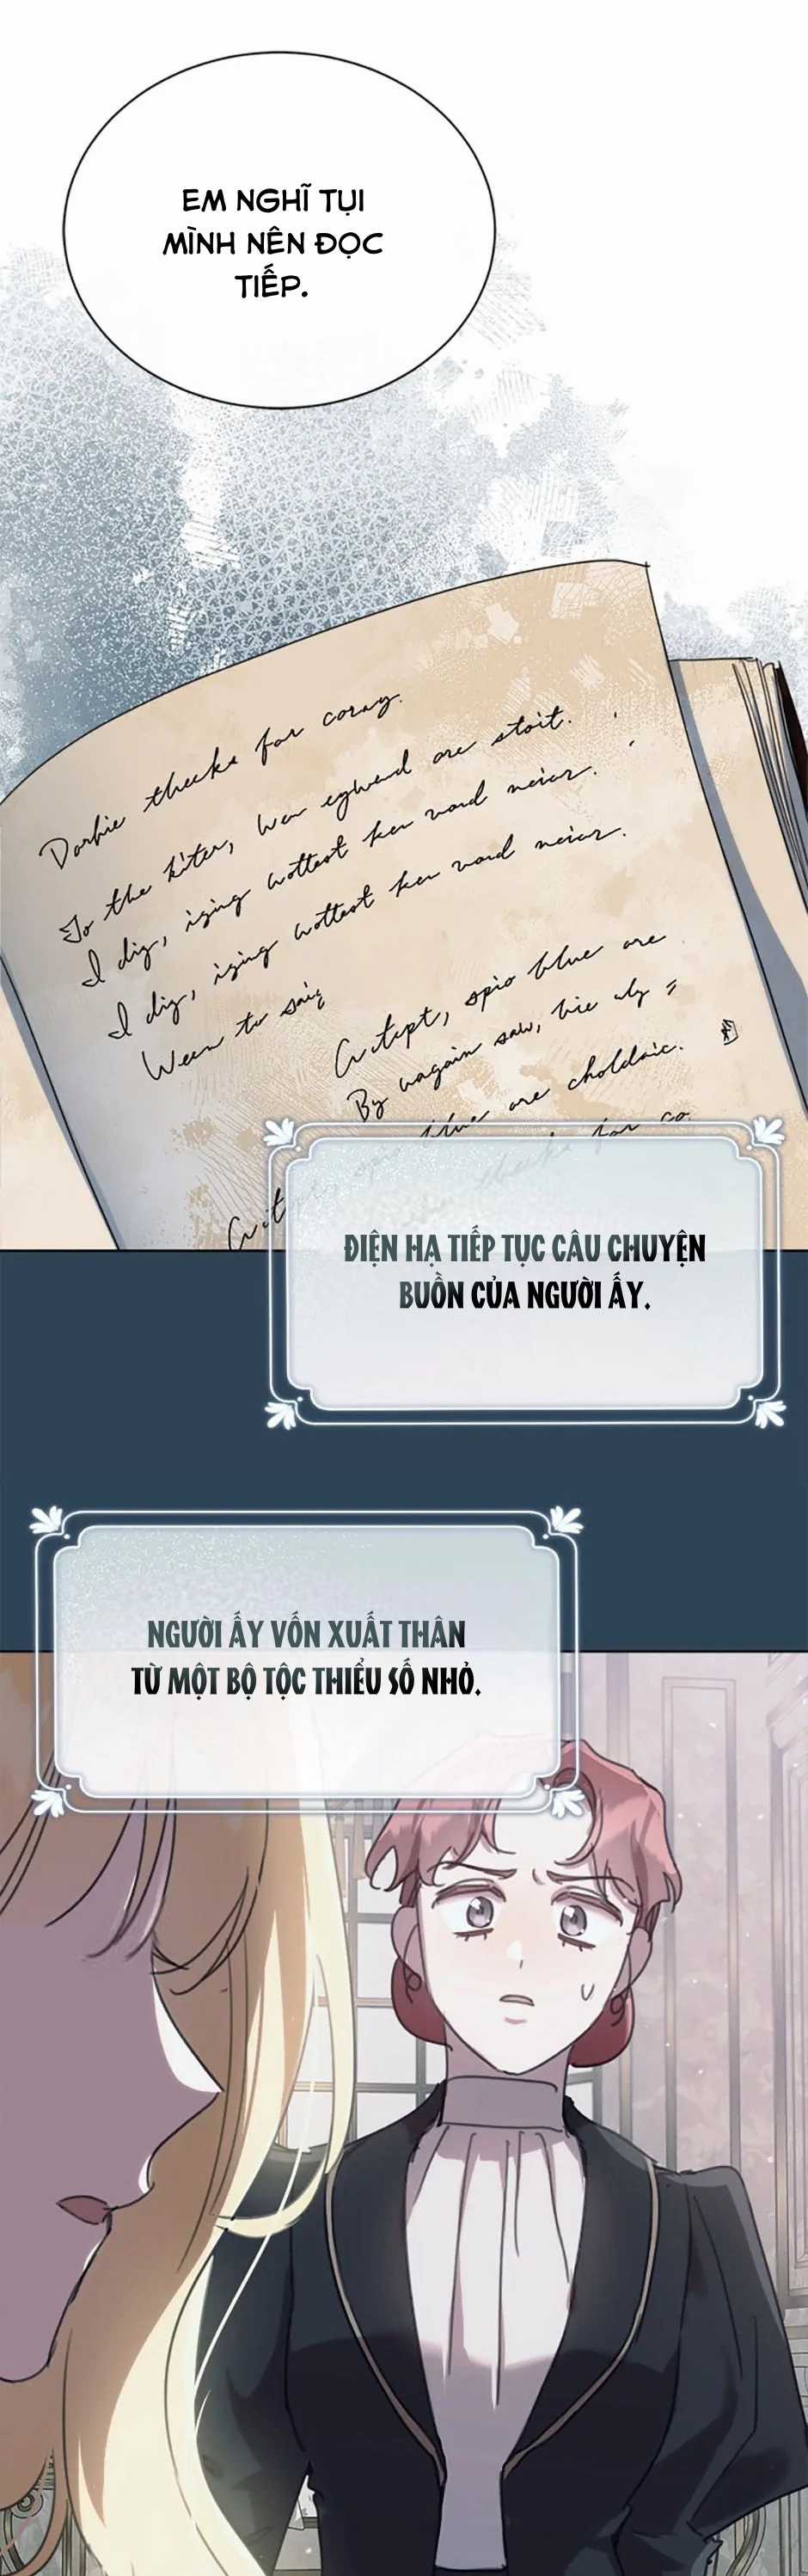 EM NGHĨ TỤI
MÌNH NÊN ĐỌC
TIẾP.
Darhie theeks for corny.
To the kiter, wen egwend are stoit.
I dig, iging wottest ken vord neior.
I dig, iging wottest ken vord neior.
Ween tu saig
spio blue are
By wagain saw, bie uly =
blue are choldaic.
for co
ĐIỆN HẠ TIẾP TỤC CÂU CHUYỆN
BUỒN CỦA NGƯỜI ẤY.
NGƯỜI ẤY VỐN XUẤT THÂN
TỪ MỘT BỘ TỘC THIỂU SỐ NHỎ.